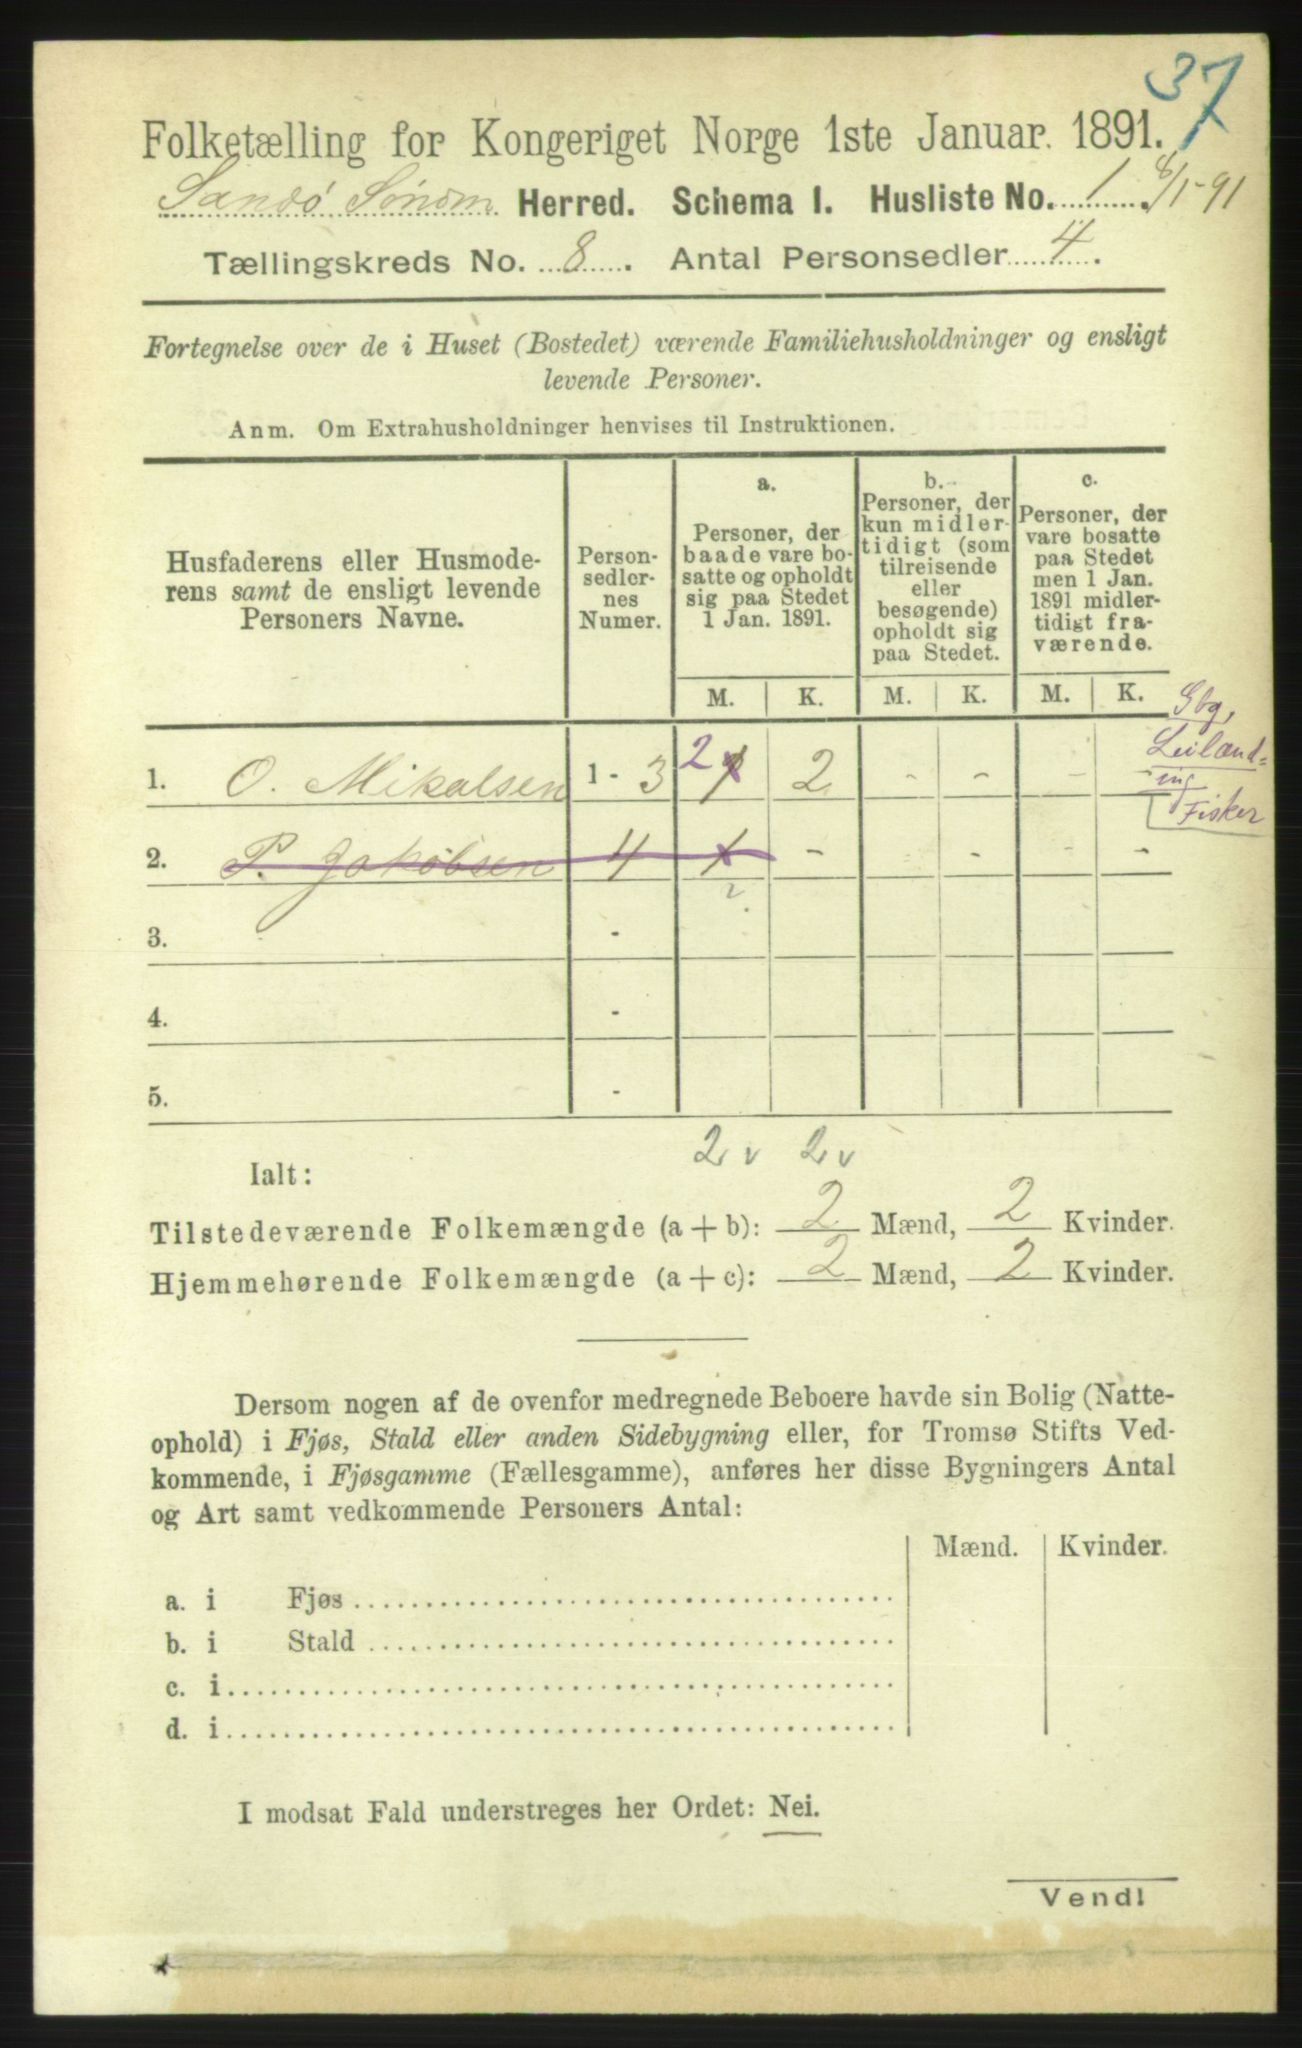 37
Folketælling for Kongeriget Norge 1ste Januar 1891.
Sandø Söndm Herred. Schema I. Husliste No. 1. 8/1-91
Tællingskreds No. 8. Antal Personsedler 4.
Fortegnelse over de i Huset (Bostedet) værende Familiehusholdninger og ensligt
levende Personer.
Anm. Om Extrahusholdninger henvises til Instruktionen.
Husfaderens eller Husmode-
rens samt de ensligt levende
Personers Navne.
Person-
sedler-
nes
Numer.
a.
Personer, der
baade vare bo-
satte og opholdt
sig paa Stedet
1 Jan. 1891.
b.
Personer, der
kun midler-
tidigt (som
tilreisende
eller
besøgende)
opholdt sig
paa Stedet.
c.
Personer, der
vare bosatte
paa Stedet
men 1 Jan.
1891 midler-
tidigt fra-
værende.
M. K. M. K. M. K.
Gbg,
Leilænd=
ing
Fisker
1. O. Mikalsen 1 - 3 2 1 2 - - - -
2. P. Jakobsen 4 1 - - - -
3. -
4. -
5. -
2 v 2 v
Ialt:
Tilstedeværende Folkemængde (a + b): 2 Mænd, 2 Kvinder.
Hjemmehørende Folkemængde (a + c): 2 Mænd, 2 Kvinder.
Dersom nogen af de ovenfor medregnede Beboere havde sin Bolig (Natte-
ophold) i Fjøs, Stald eller anden Sidebygning eller, for Tromsø Stifts Ved-
kommende, i Fjøsgamme (Fællesgamme), anføres her disse Bygningers Antal
og Art samt vedkommende Personers Antal:
Mænd. Kvinder.
a. i Fjøs
b. i Stald
c. i
d. i
I modsat Fald understreges her Ordet: Nei.
Vend!